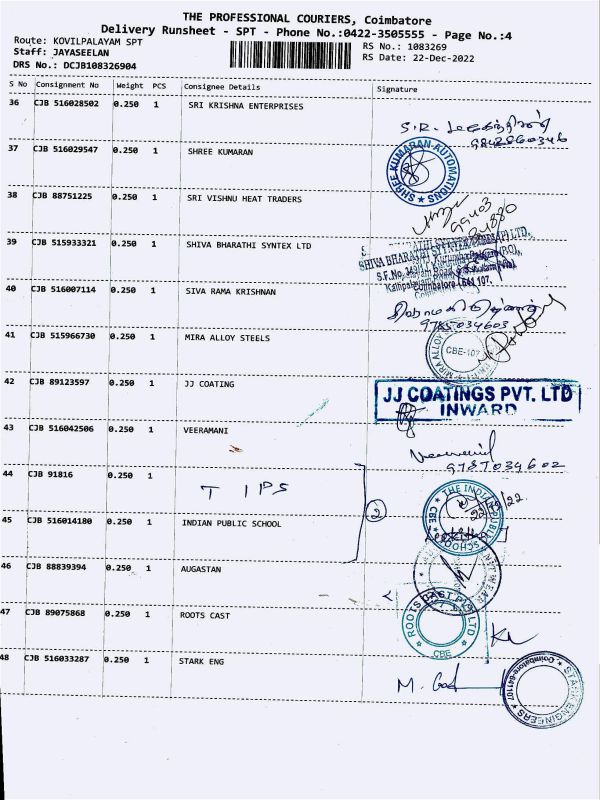 THE PROFESSIONAL COURIERS, Coimbatore
Delivery Runsheet - SPT - Phone No.:0422-3505555 - Page No.:4
Route: KOVILPALAYAM SPT
RS No.: 1083269
Staff: JAYASEELAN
RS Date: 22-Dec-2022
DRS No.: DCJB108326904
S No Consignment No Weight PCS Consignee Details Signature
36 CJB 516028502 0.250 1 SRI KRISHNA ENTERPRISES
S.R.
37 CJB 516029547 0.250 1 SHREE KUMARAN
SHREE KUMARAN AUTOMATIONS
38 CJB 88751225 0.250 1 SRI VISHNU HEAT TRADERS
99403
39 CJB 515933321 0.250 1 SHIVA BHARATHI SYNTEX LTD
SHIVA BHARATHI
S.F.No.
Coimbatore - 641 107.
40 CJB 516007114 0.250 1 SIVA RAMA KRISHNAN
9787034603
41 CJB 515966730 0.250 1 MIRA ALLOY STEELS
MIRA ALLOY
CBE-107
42 CJB 89123597 0.250 1 JJ COATING
JJ COATINGS PVT. LTD
INWARD
43 CJB 516042506 0.250 1 VEERAMANI
9787034602
44 CJB 91816 0.250 1
TIPS
2
THE INDIAN PUBLIC SCHOOL
CBE
45 CJB 516014180 0.250 1 INDIAN PUBLIC SCHOOL
46 CJB 88839394 0.250 1 AUGASTAN
47 CJB 89075868 0.250 1 ROOTS CAST
ROOTS CAST PVT LTD
CBE
48 CJB 516033287 0.250 1 STARK ENG
M.
STARK ENGINEERS
Coimbatore-641107